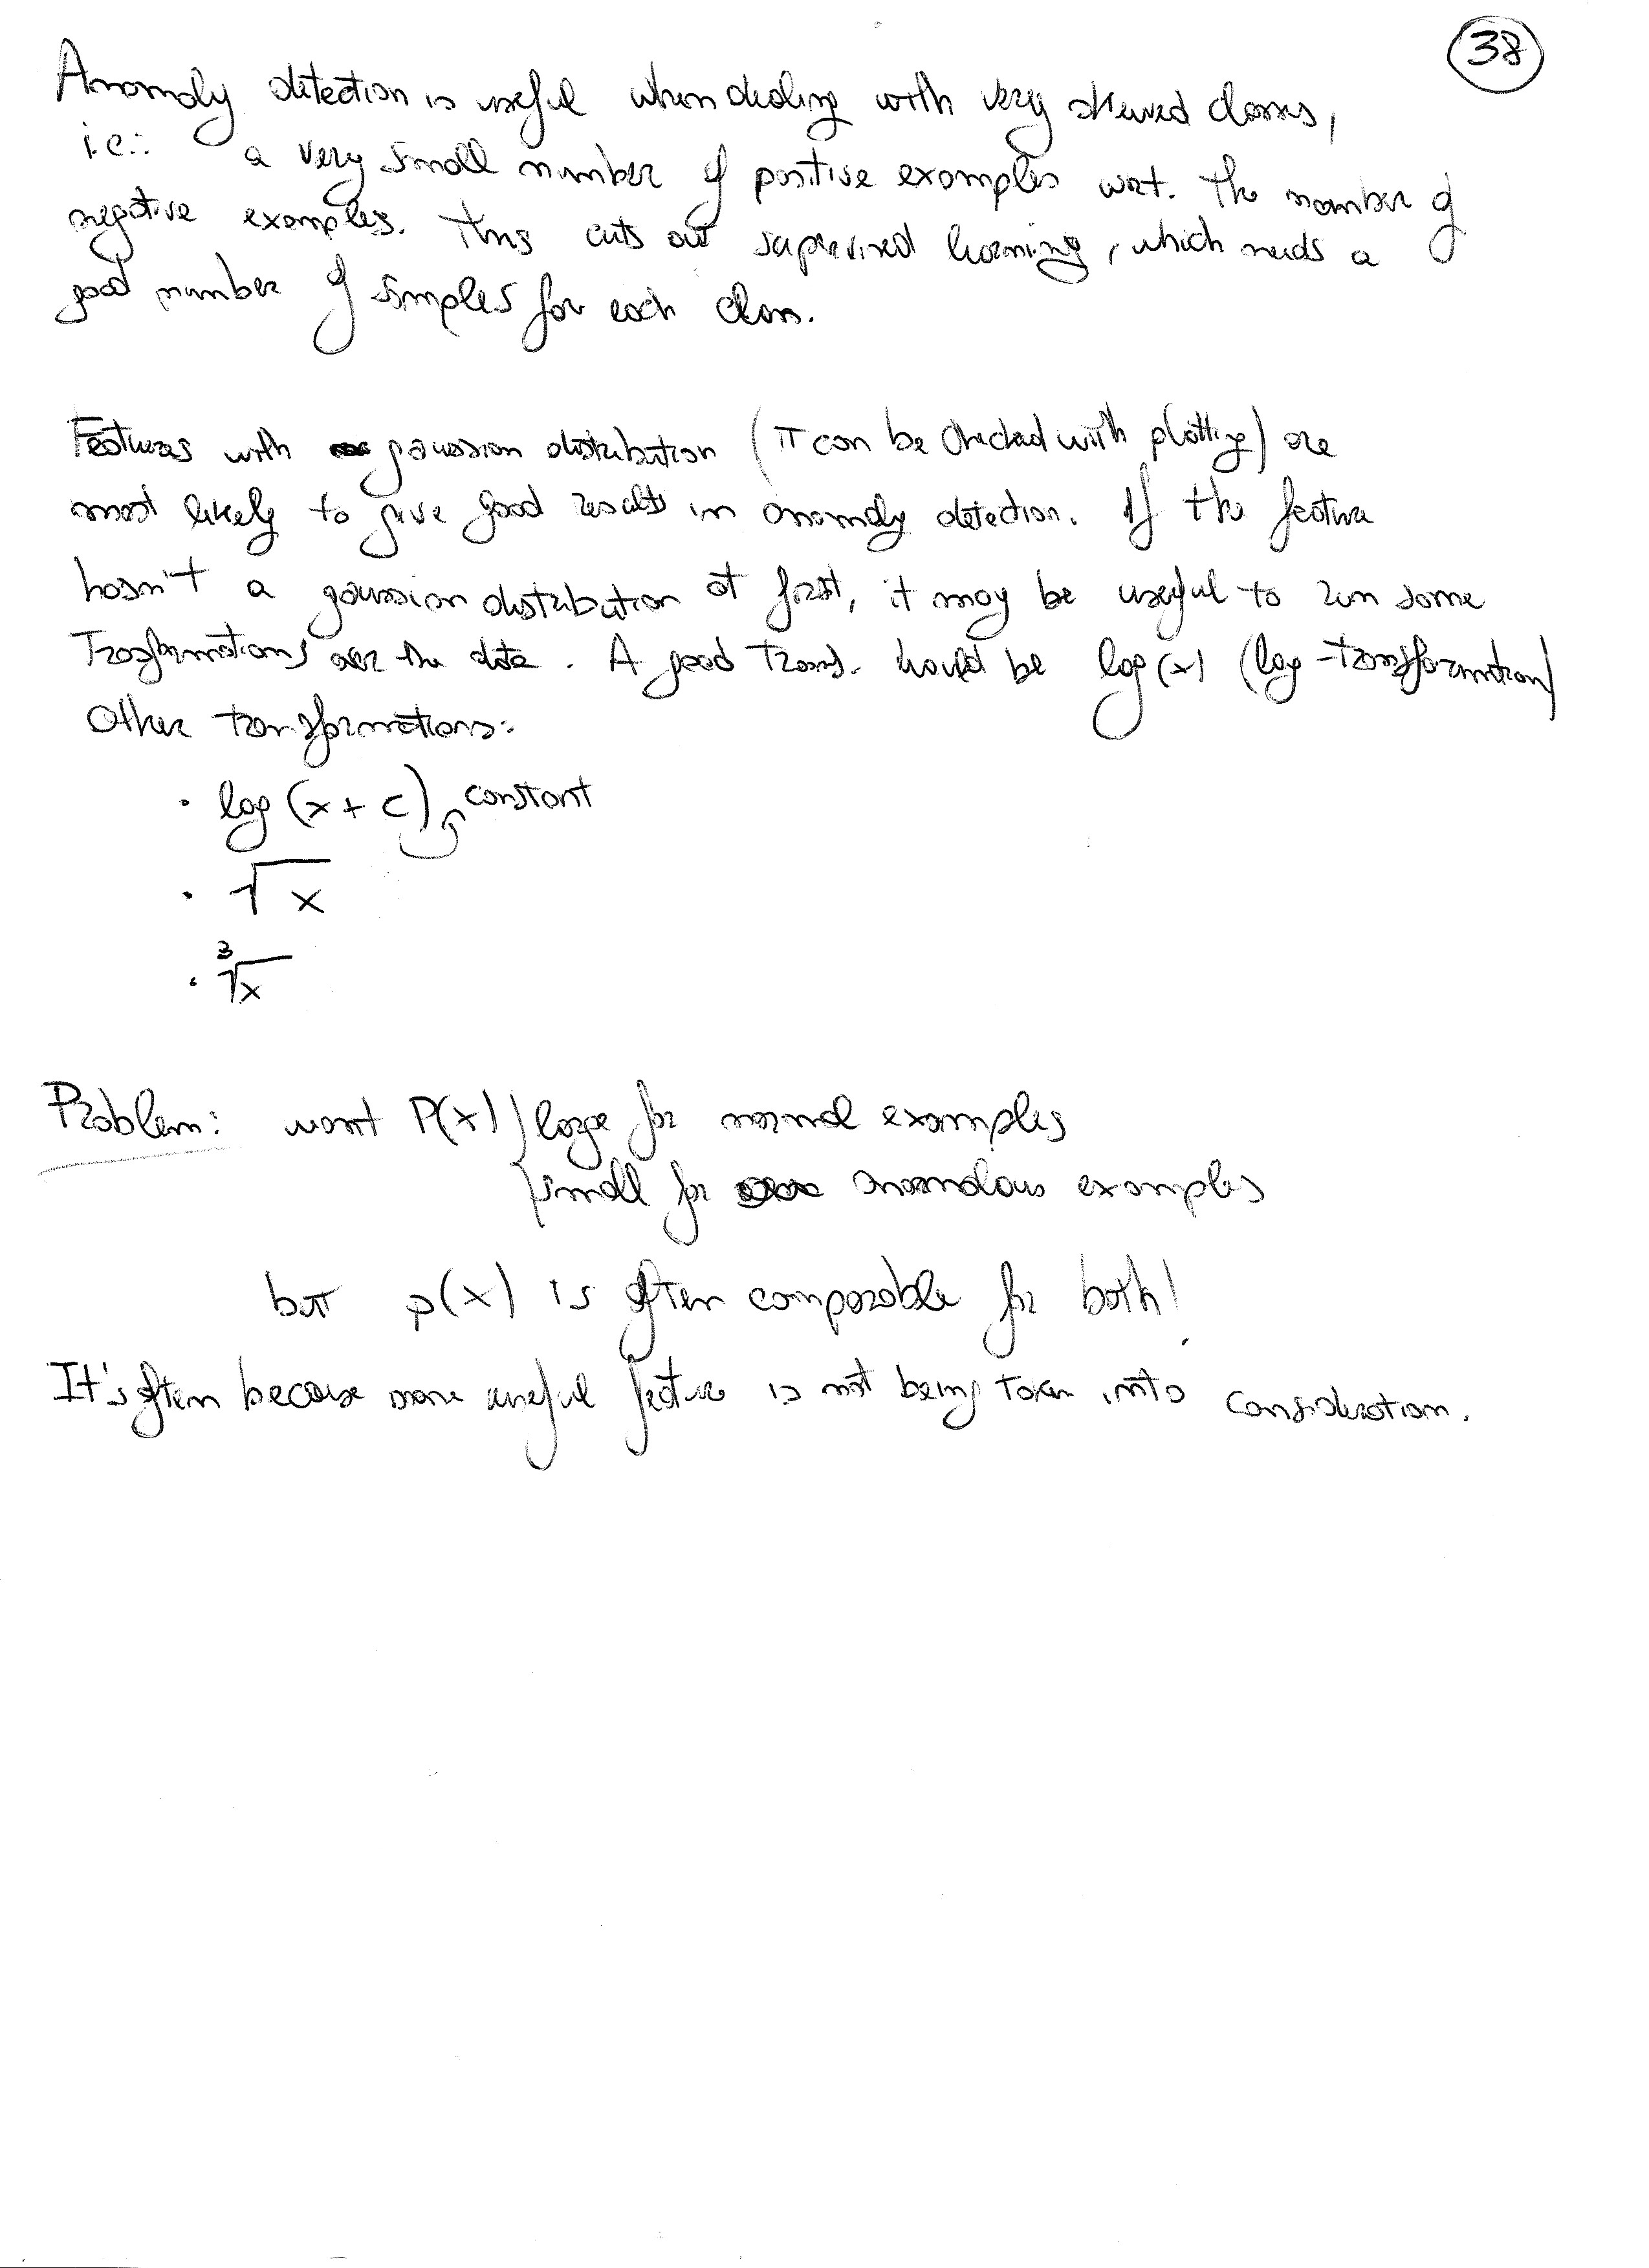 38
Anomaly detection is useful when dealing with very skewed classes,
i.e.: a very small number of positive examples wrt. the number of
negative examples. This cuts out supervised learning, which needs a
good number of samples for each class.
Features with gaussian distribution (it can be checked with plotting) are
most likely to give good results in anomaly detection. If the feature
hasn't a gaussian distribution at first, it may be useful to run some
transformations over the data. A good transf. would be log(x) (log-transformation)
Other transformations:
• log(x + c) constant
• √x
• ∛x
Problem: want P(x) } large for normal examples
} small for anomalous examples
but p(x) is often comparable for both!
It's often because more useful feature is not being taken into consideration.